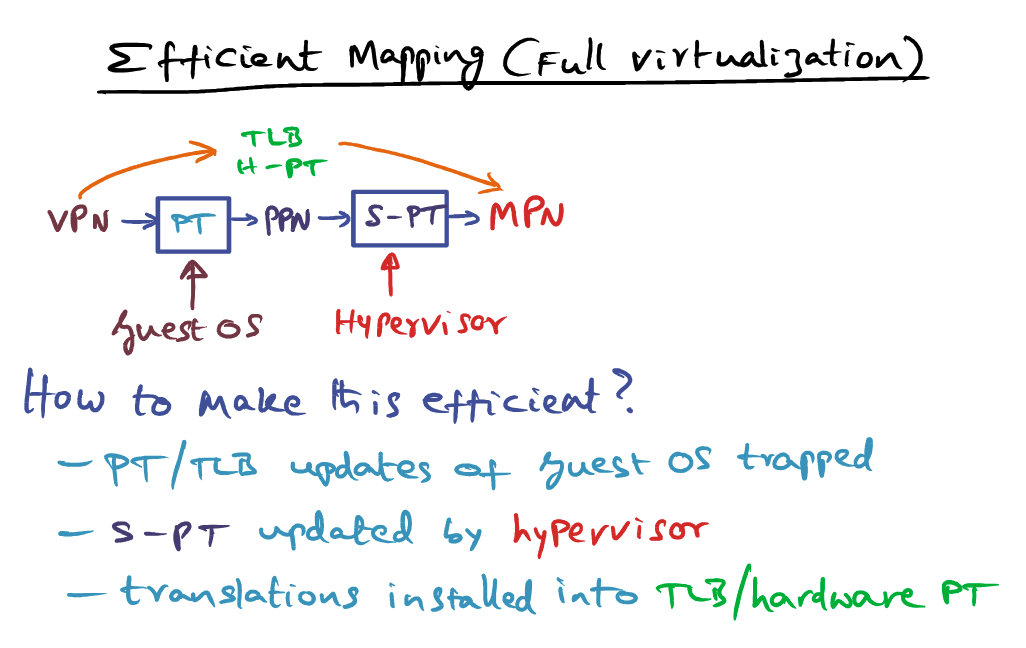 Efficient Mapping (Full virtualization)
TLB
H-PT
VPN PT PPN S-PT MPN
Guest OS Hypervisor
How to make this efficient?
- PT/TLB updates of guest OS trapped
- S-PT updated by hypervisor
- translations installed into TLB/hardware PT